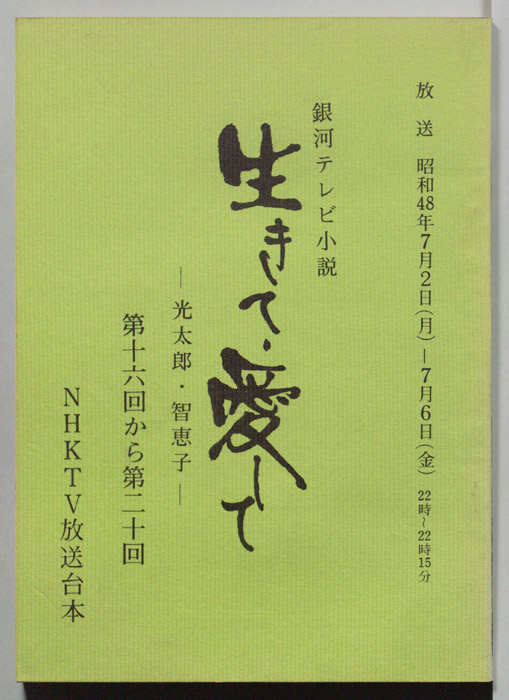 放送 昭和48年7月2日(月)－7月6日(金) 22時～22時15分
銀河テレビ小説
生きて・愛して
－光太郎・智恵子－
第十六回から第二十回
NHKTV放送台本